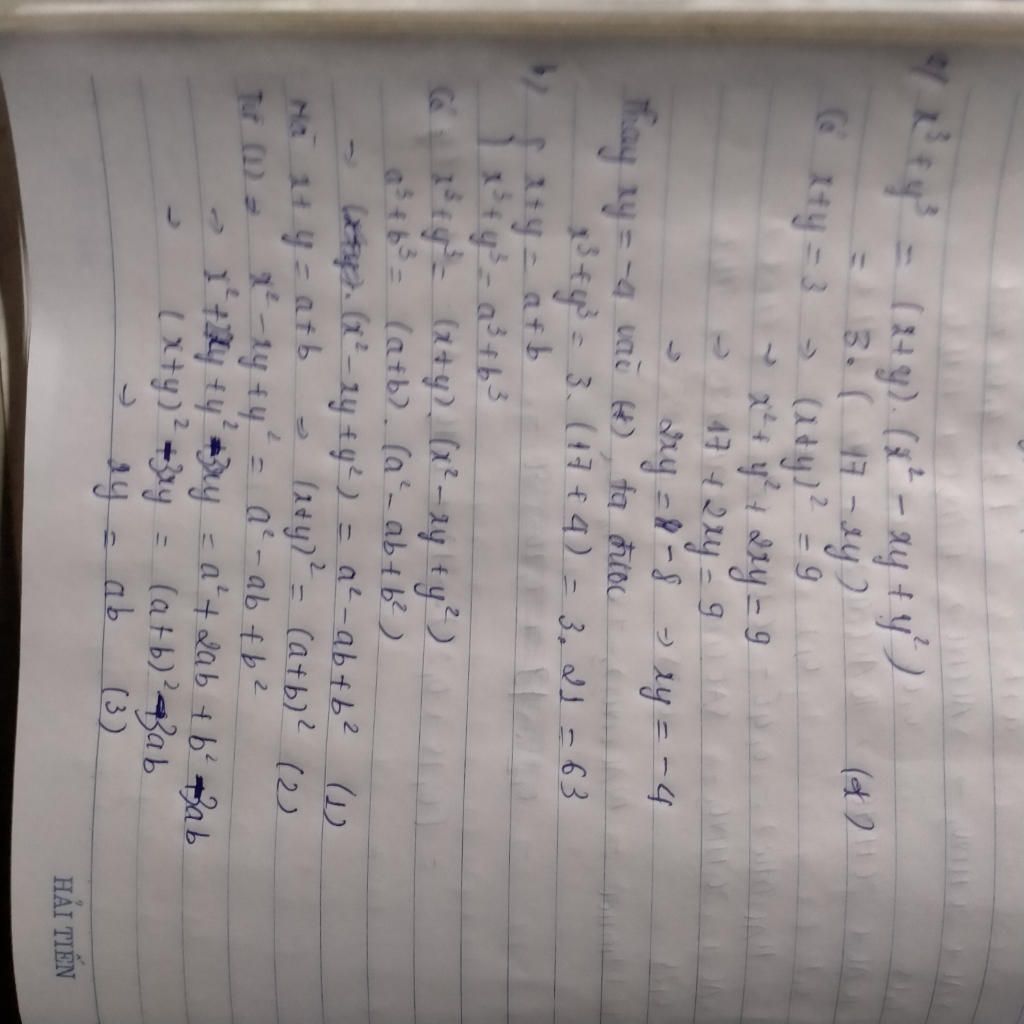 a) x³ + y³ = (x+y).(x² - xy + y²)
= 3.(17 - xy) (*)
Có x+y = 3 → (x+y)² = 9
→ x² + y² + 2xy = 9
→ 17 + 2xy = 9
→ 2xy = -8 → xy = -4
Thay xy = -4 vào (*), ta được
x³ + y³ = 3.(17+4) = 3.21 = 63
b) { x+y = a+b
{ x³+y³ = a³+b³
Có x³+y³ = (x+y).(x² - xy + y²)
a³+b³ = (a+b).(a² - ab + b²)
→ (x² - xy + y²) = a² - ab + b² (1)
Mà x + y = a+b → (x+y)² = (a+b)² (2)
Từ (1) → x² - xy + y² = a² - ab + b²
→ x² + 2xy + y² - 3xy = a² + 2ab + b² - 3ab
→ (x+y)² - 3xy = (a+b)² - 3ab
→ xy = ab (3)
HẢI TIẾN